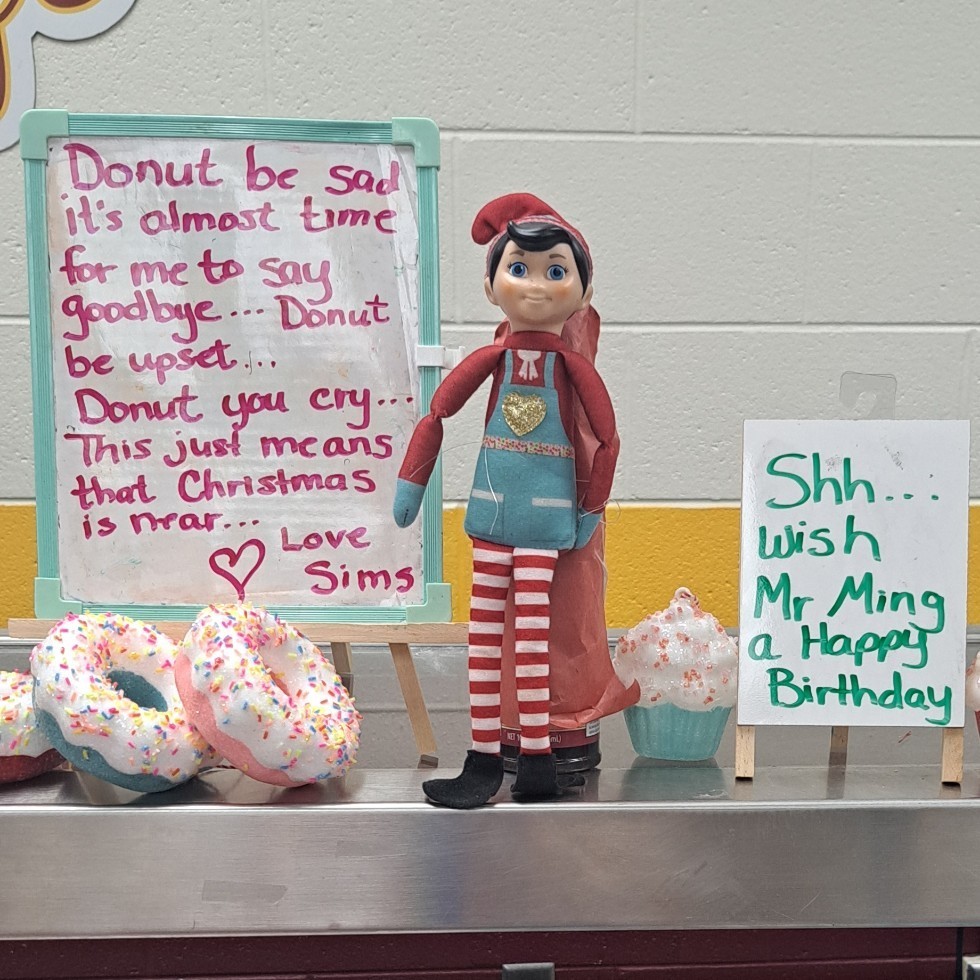 Donut be sad
it's almost time
for me to say
goodbye... Donut
be upset...
Donut you cry...
This just means
that Christmas
is near...
Love
Sims
Shh...
wish
Mr Ming
a Happy
Birthday